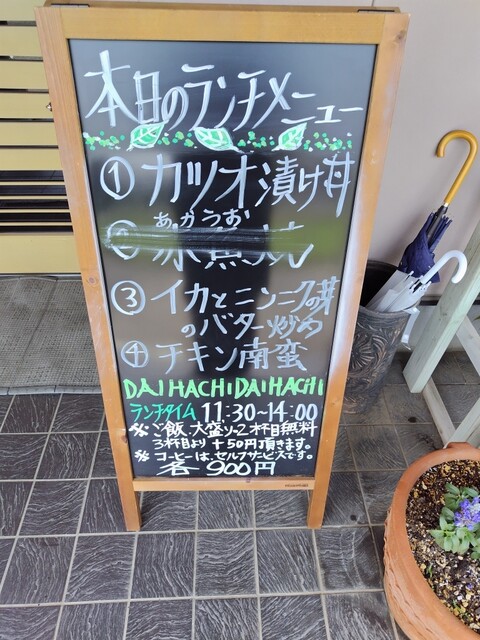 本日のランチメニュー
① カツオ漬け丼
あかうお
② 赤魚焼
③ イカとニンニクの芽
のバター炒め
④ チキン南蛮
DAIHACHIDAIHACHI
ランチタイム 11:30~14:00
※ ご飯、大盛り・2杯目無料
3杯目より +50円頂きます。
※ コーヒーは、セルフサービスです。
各900円